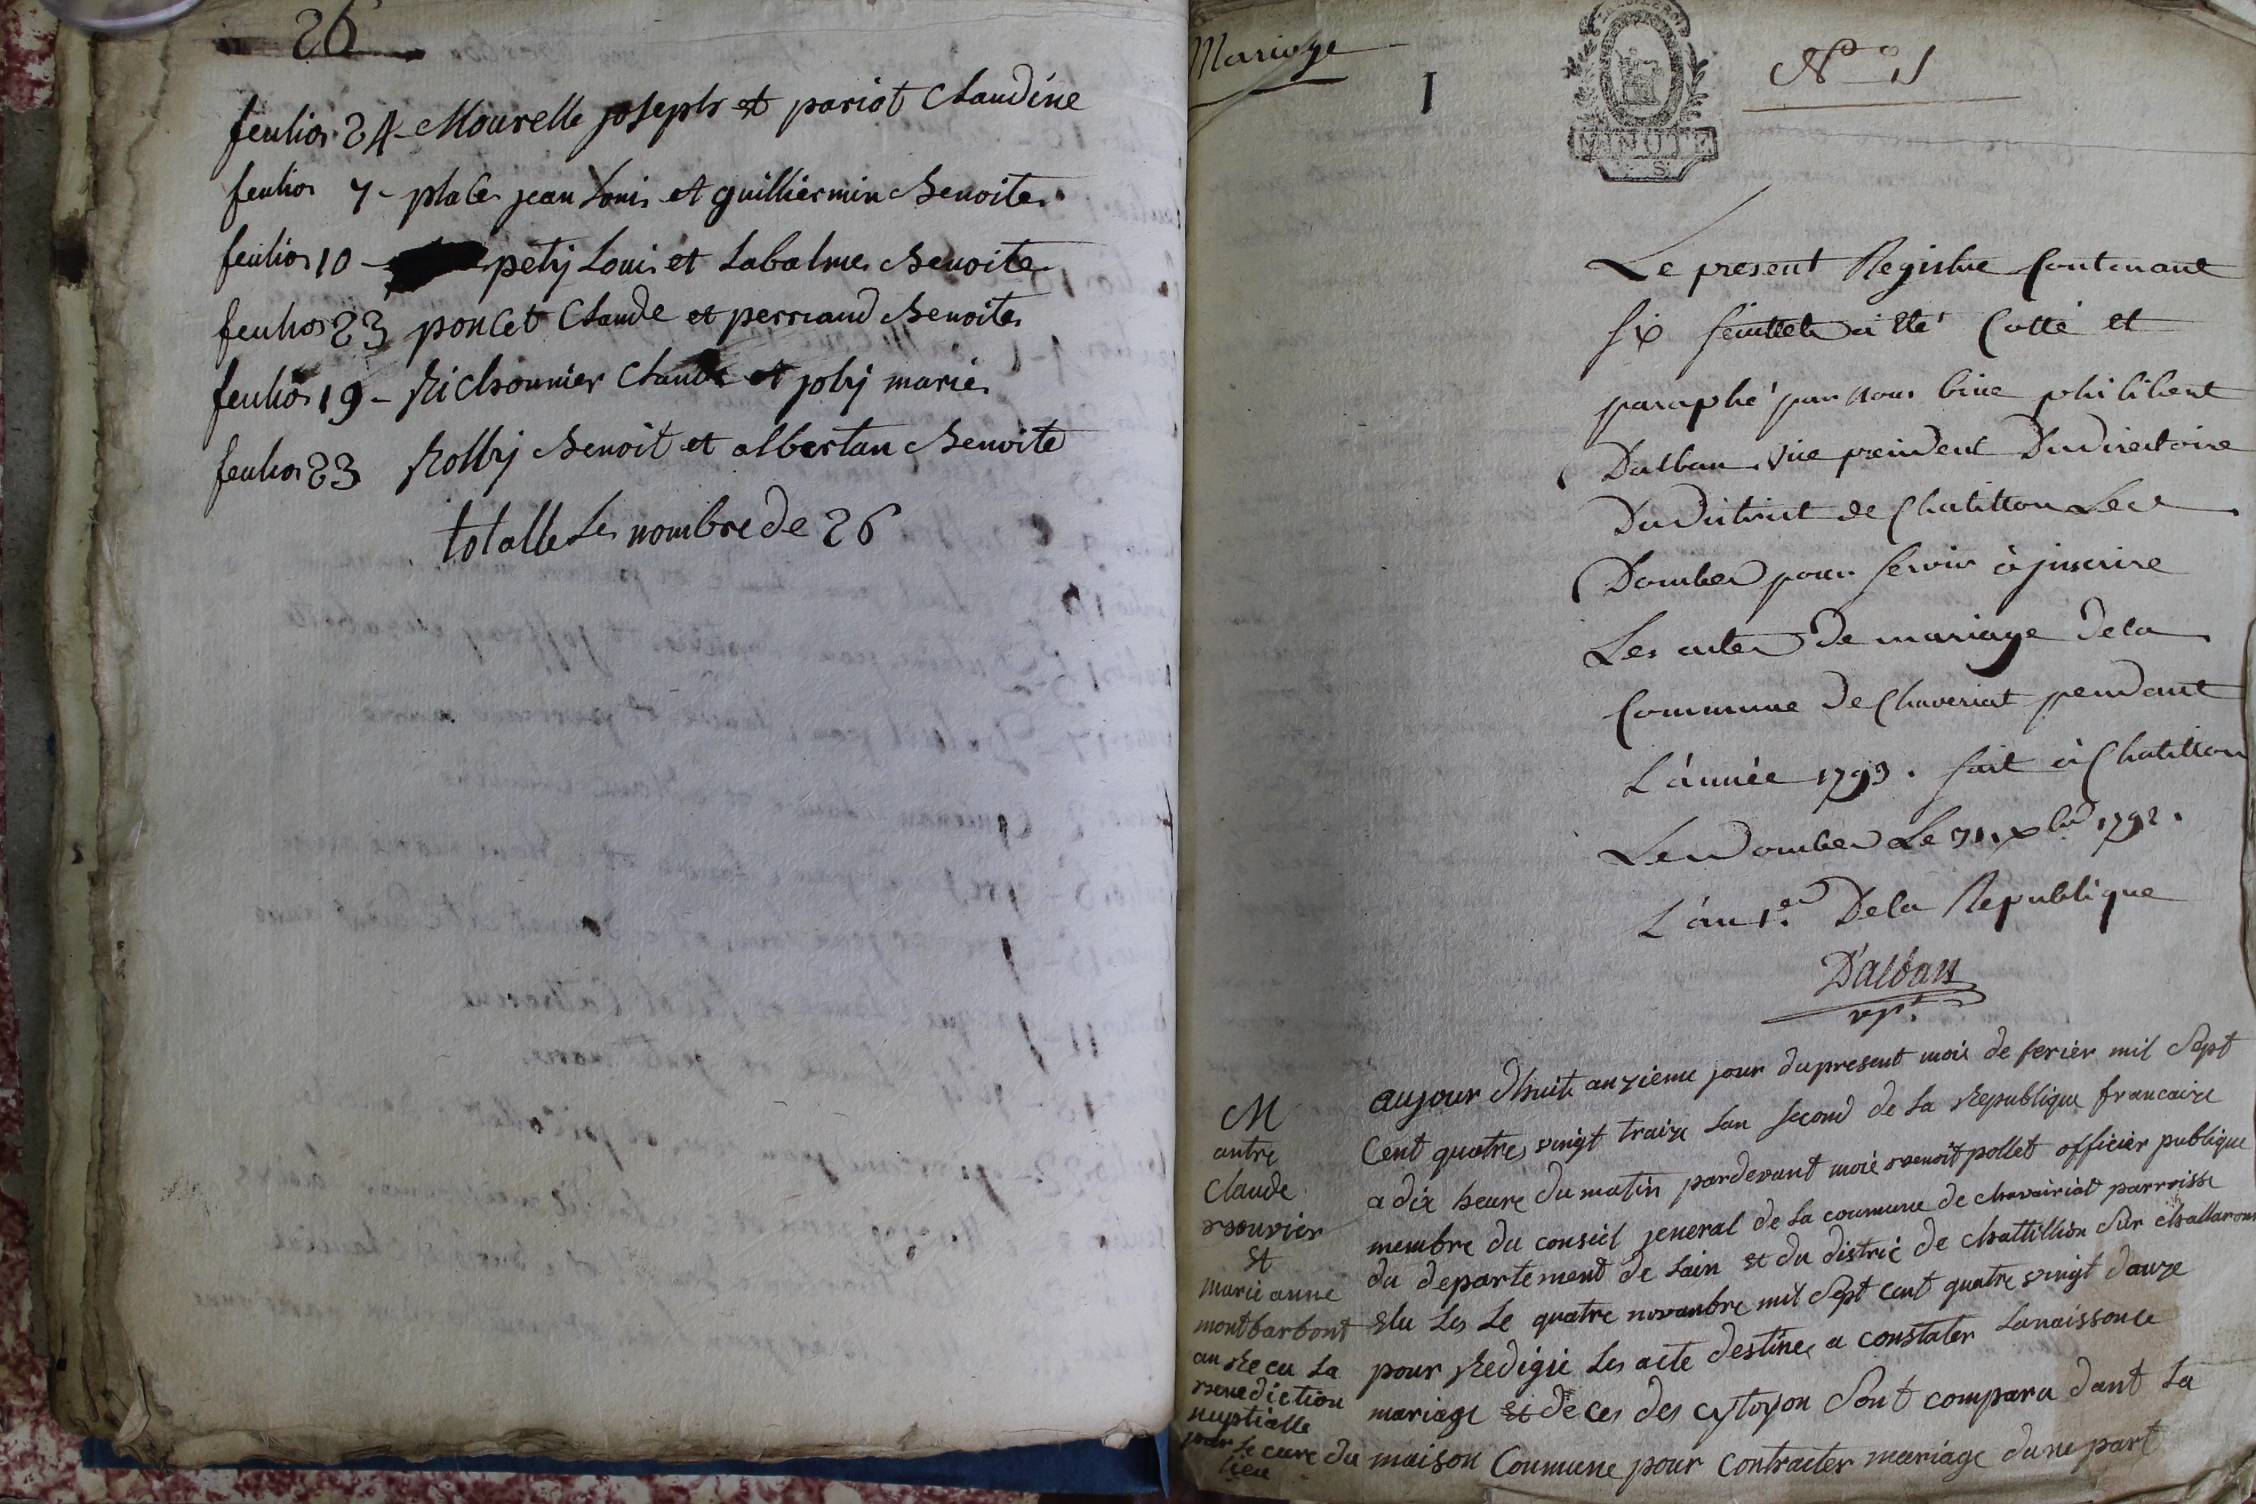 26
feulios 24 - Mourelle joseph et pariot Claudine
feulios 7 - place jean Louis et guilliermin Benoite
feulios 10 - petij Louis et Labalme Benoite
feulios 23 poncet Claude et perraud Benoite
feulios 19 - Richonnier Claude et jolij marie
feulios 23 Rollij Benoit et albertan Benoite
totalle Le nombre de 26
Mariage
1
N° 1
MINUTE
Le present Registre Contenant
six feuillets a été Cotté et
paraphé par nous
Dalban vice president Du directoire
Du District de Chatillon Les
Dombes pour servir à jnscrire
Les actes De mariage De la
Commune De Chaveriat pendant
L'année 1793. fait à Chatillon
Les Dombes Le 31. Xbre 1792.
L'an 1er. De la Republique
D'alban
vp.t
M
antre
Claude
Bouvier
Et
marie anne
montbarbont
an Recu La
Benediction
nuptialle
par Le cure du
lieu
aujour dhuit anzieme jour du present mois de ferier mil Sept
Cent quatre vingt traize Lan second de La Republique francaize
a dix heure du matin pardevant moie Benoit pollet officier publique
membre du conseil jeneral de La coumune de chavairiat parroisse
du departement de Lain et du distric de chattillion sur challaronne
Elu Les Le quatre novanbre mil Sept cent quatre vingt dauze
pour Redigié Les acte destines a constater Lanaissance
mariage et déces des cytoyon Sont compara dant La
maison Coumune pour contracter mariage dune part